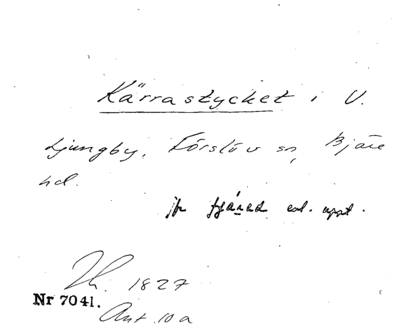 Kärrastycket i V.
Ljungby, Förslöv sn, Bjäre
hd.
jfr enl. uppt.
1827
Nr 7041.
Ant. 10 a